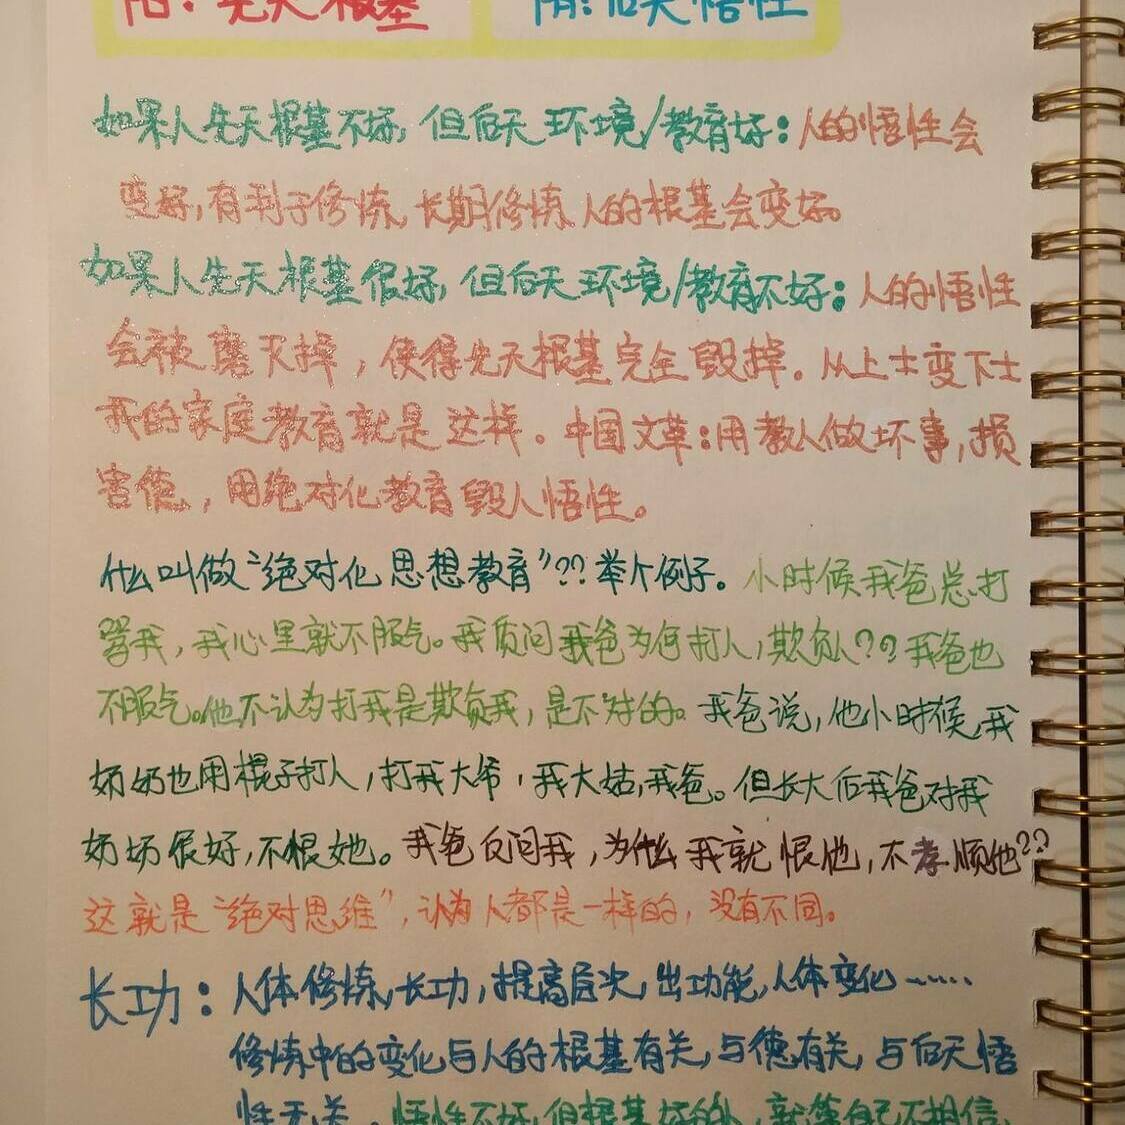 阳：先天根基 阴：后天悟性
如果人先天根基不好，但后天环境/教育好：人的悟性会
变好，有利于修炼，长期修炼，人的根基会变好。
如果人先天根基很好，但后天环境/教育不好：人的悟性
会被磨灭掉，使得先天根基完全毁掉。从上士变下士
我的家庭教育就是这样。中国文革：用教人做坏事，损
害德，用绝对化教育毁人悟性。
什么叫做“绝对化思想教育”？？举个例子。小时候我爸总打
骂我，我心里就不服气。我质问我爸为何打人，欺负人？？我爸也
不服气。他不认为打我是欺负我，是不对的。我爸说，他小时候，我
奶奶也用棍子打人，打我大爷，我大姑，我爸。但长大后我爸对我
奶奶很好，不恨她。我爸反问我，为什么我就恨他，不孝顺他？？
这就是“绝对思维”，认为人都是一样的，没有不同。
长功：人体修炼，长功，提高层次，出功能，人体变化……
修炼中的变化与人的根基有关，与德有关，与后天悟
性无关。悟性不好，但根基好的人，就算自己不相信，